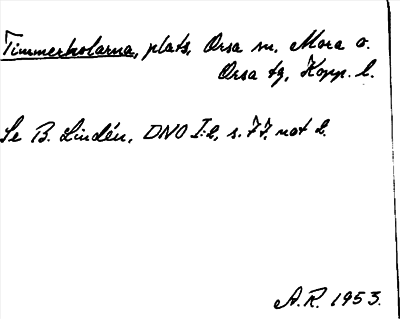 Timmerkolarna, plats, Orsa sn, Mora o.
Orsa tg, Kopp. l.
Se B. Lindén, DNO I:2, s. 77, not 2.
A.R. 1953.